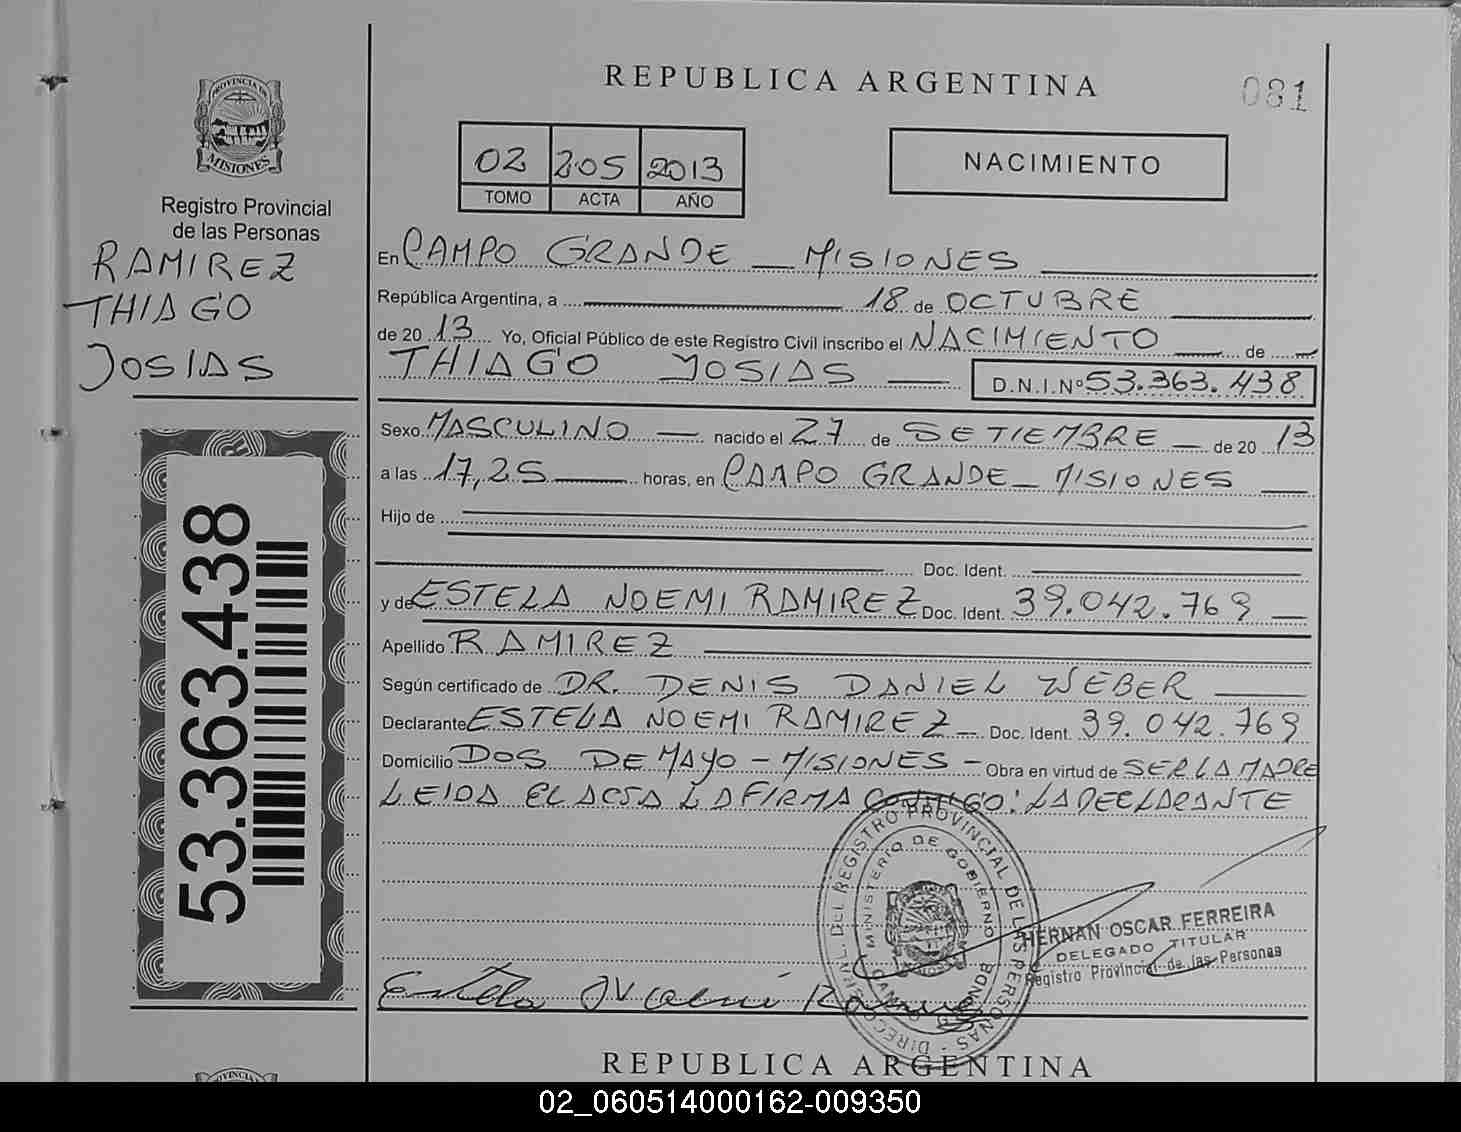 PROVINCIA DE
MISIONES
Registro Provincial
de las Personas
RAMIREZ
THIAGO
JOSIAS
53.363.438
REPUBLICA ARGENTINA
081
02 205 2013
TOMO ACTA AÑO
NACIMIENTO
En CAMPO GRANDE _ MISIONES
República Argentina, a 18 de OCTUBRE
de 20 13 Yo, Oficial Público de este Registro Civil inscribo el NACIMIENTO de
THIAGO JOSIAS D.N.I.Nº 53.363.438
Sexo MASCULINO nacido el 27 de SETIEMBRE de 20 13
a las 17,25 horas, en CAMPO GRANDE _ MISIONES
Hijo de
Doc. Ident.
y de ESTELA NOEMI RAMIREZ Doc. Ident. 39.042.769
Apellido RAMIREZ
Según certificado de DR. DENIS DANIEL WEBER
Declarante ESTELA NOEMI RAMIREZ Doc. Ident. 39.042.769
Domicilio DOS DE MAYO - MISIONES - Obra en virtud de SER LA MADRE
LEIDA EL ACTA LA FIRMA CONMIGO: LA DECLARANTE
DIRECCION GRAL. DEL REGISTRO PROVINCIAL DE LAS PERSONAS
MINISTERIO DE GOBIERNO
HERNAN OSCAR FERREIRA
DELEGADO TITULAR
Registro Provincial de las Personas
Estela Noemi
REPUBLICA ARGENTINA
02_060514000162-009350